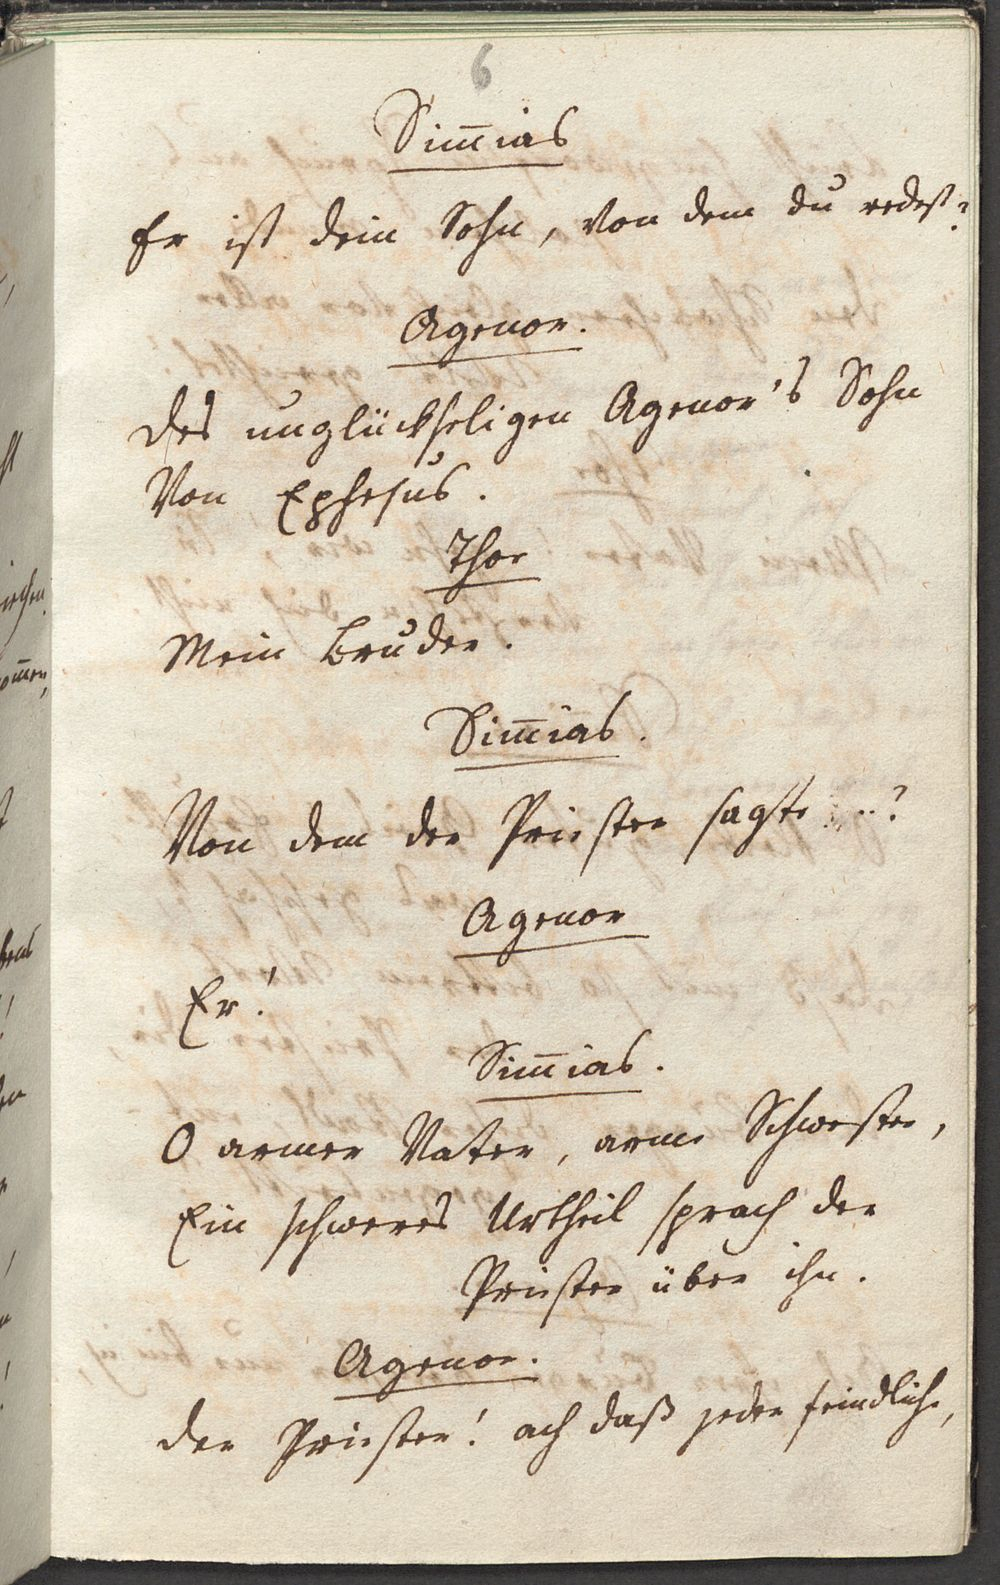 6
Sim̅ias
Er ist dein Sohn, von dem du redest?
Agenor.
Des unglückseligen Agenor's Sohn
Von Ephesus.
Thor
Mein Bruder.
Sim̅ias.
Von dem der Priester sagte ...?
Agenor
Er!
Sim̅ias.
O armer Vater, arme Schwester,
Ein schweres Urtheil sprach der
Priester über ihn.
Agenor.
Der Priester! ach daß jeder feindliche,